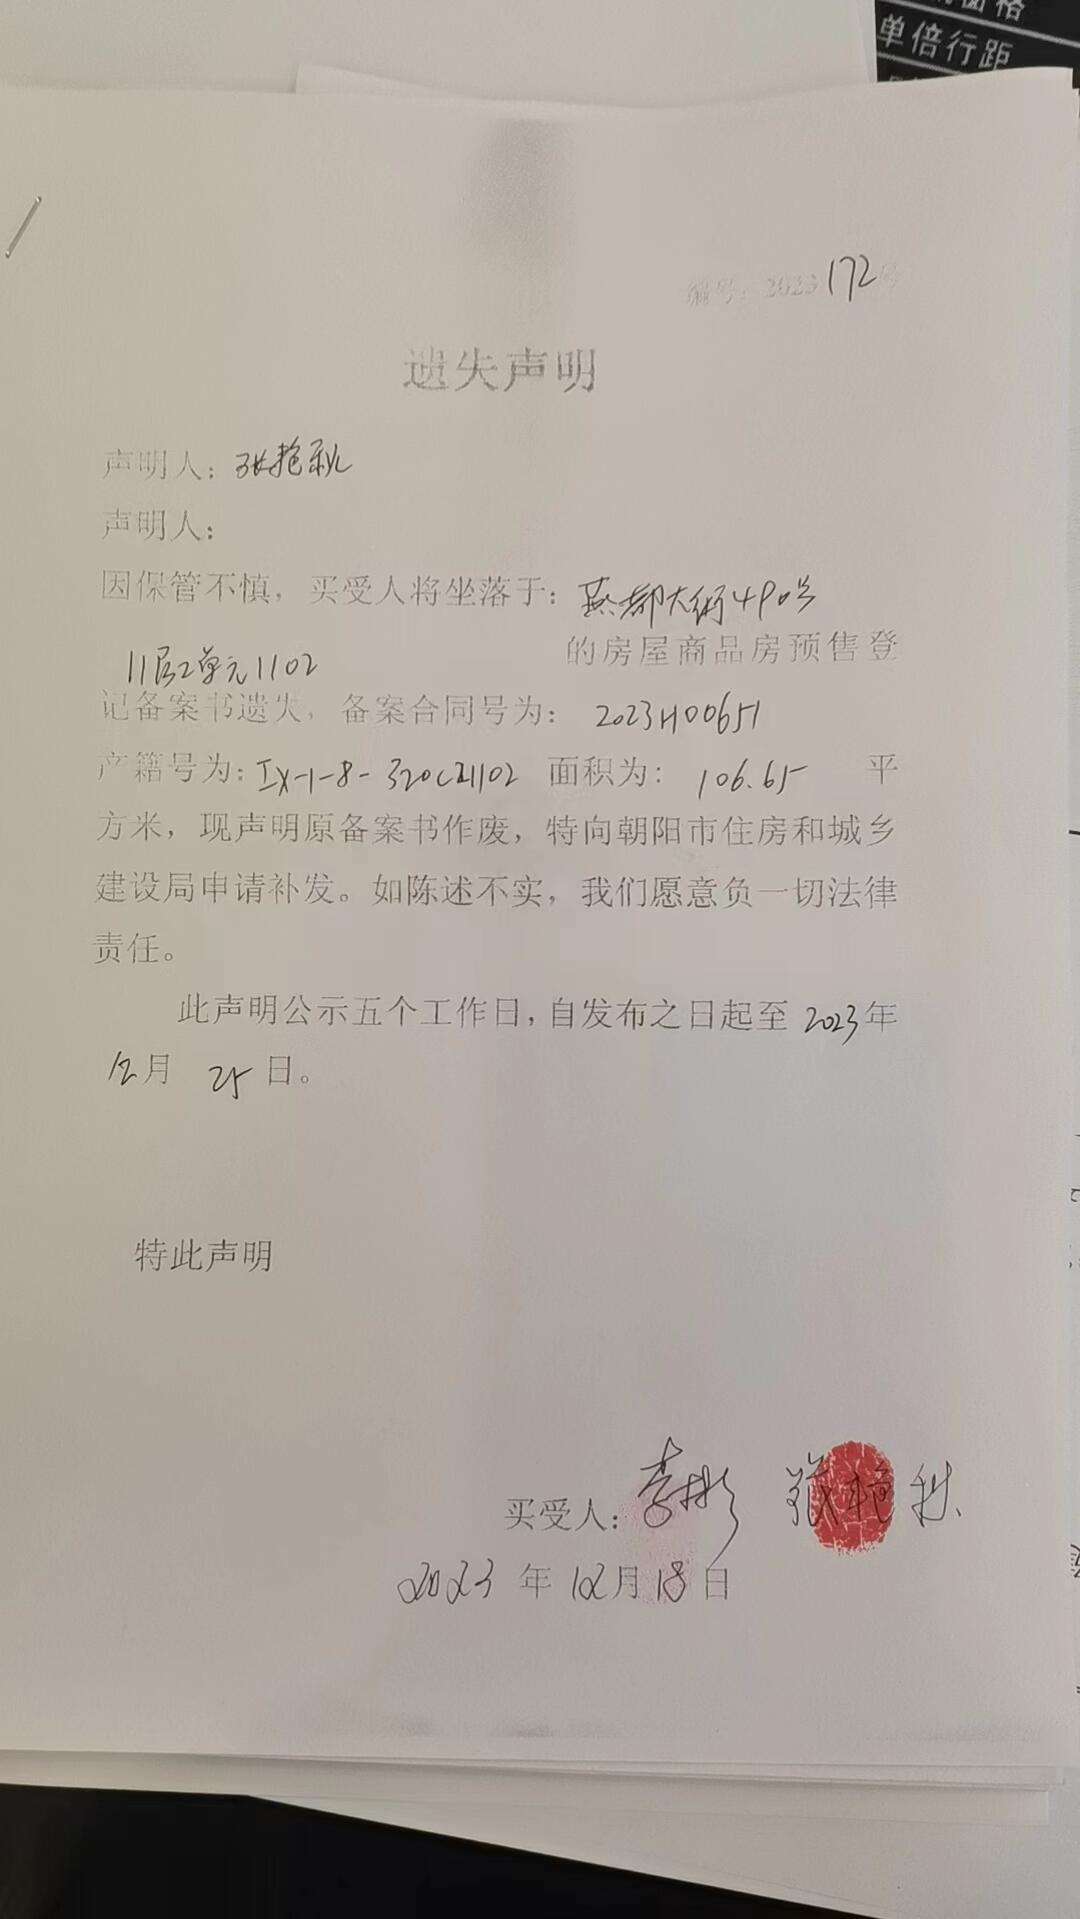 单倍行距
编号：2023 172号
遗失声明
声明人：张艳秋
声明人：
因保管不慎，买受人将坐落于：燕都大街490号
11层2单元1102 的房屋商品房预售登
记备案书遗失，备案合同号为：2023H00651
产籍号为：IX-1-8-320C21102 面积为：106.65 平
方米，现声明原备案书作废，特向朝阳市住房和城乡
建设局申请补发。如陈述不实，我们愿意负一切法律
责任。
此声明公示五个工作日，自发布之日起至 2023年
12月 25日。
特此声明
买受人：李彬 张艳秋
2023 年 12月 18日